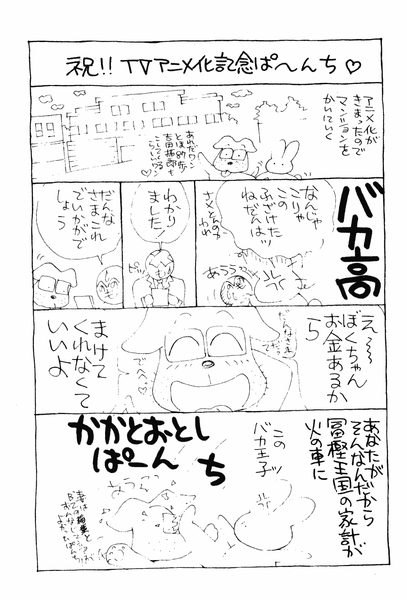 祝!! TVアニメ化記念ぱ〜んち♡
アニメ化が
きまったので
マンションを
かいにいく
バカ高
なんじゃ
こりゃ
この
ふざけた
ねだんはッ
あううう
わかり
ました!
ピッ
だんな
さま これ
でいかがで
しょう
え〜〜
ぼくちゃん
お金あるか
ら
まけて
くれなくて
いいよ
あなたが
そんなんだから
冨樫王国の家計が
火の車に
この
バカ王子ッ
かかとおとし
ぱーんち